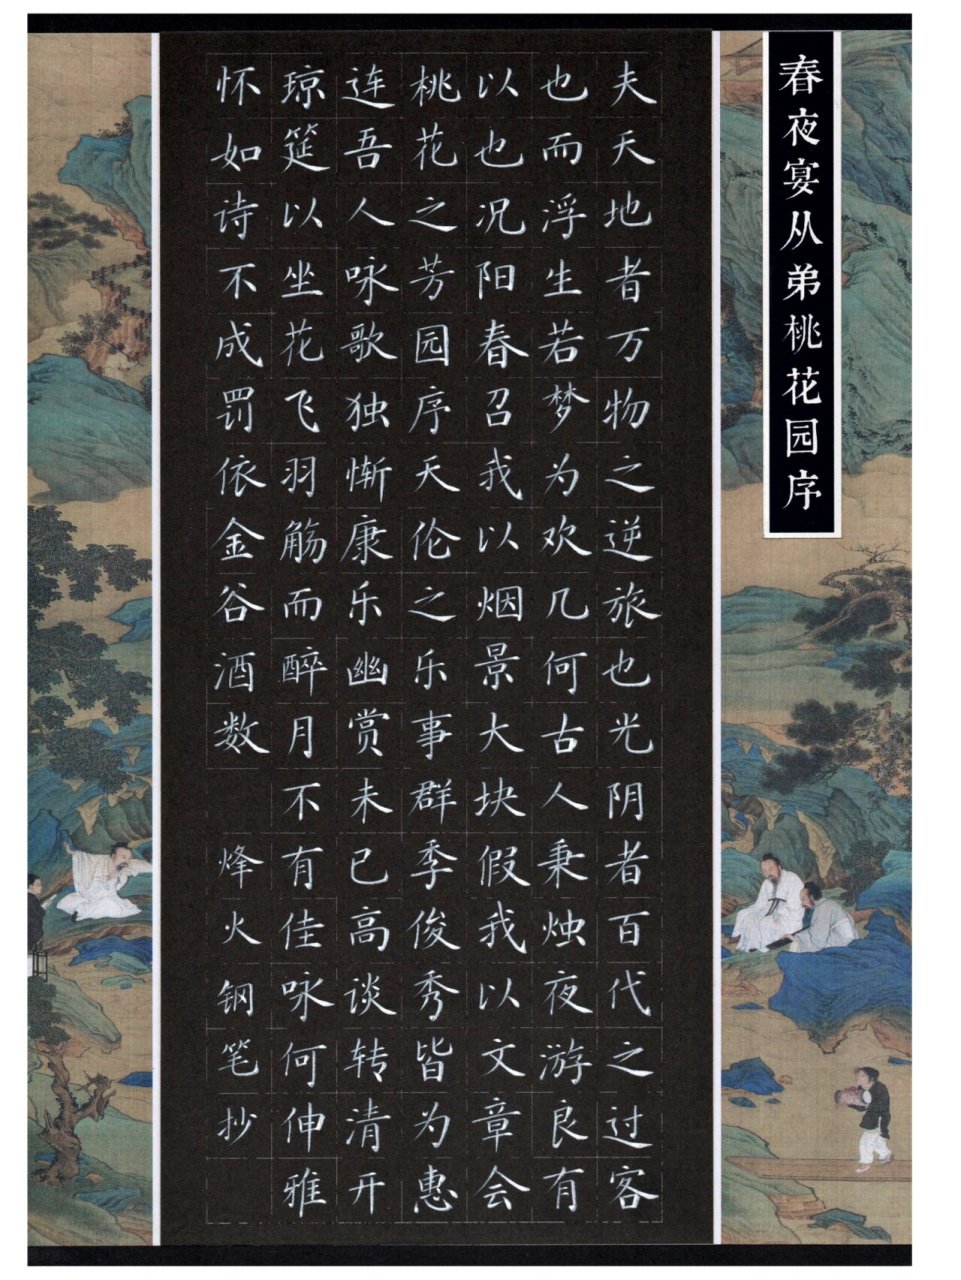 春夜宴从弟桃花园序
夫天地者万物之逆旅也光阴者百代之过客
也而浮生若梦为欢几何古人秉烛夜游良有
以也况阳春召我以烟景大块假我以文章会
桃花之芳园序天伦之乐事群季俊秀皆为惠
连吾人咏歌独惭康乐幽赏未已高谈转清开
琼筵以坐花飞羽觞而醉月不有佳咏何伸雅
怀如诗不成罚依金谷酒数 烽火钢笔抄